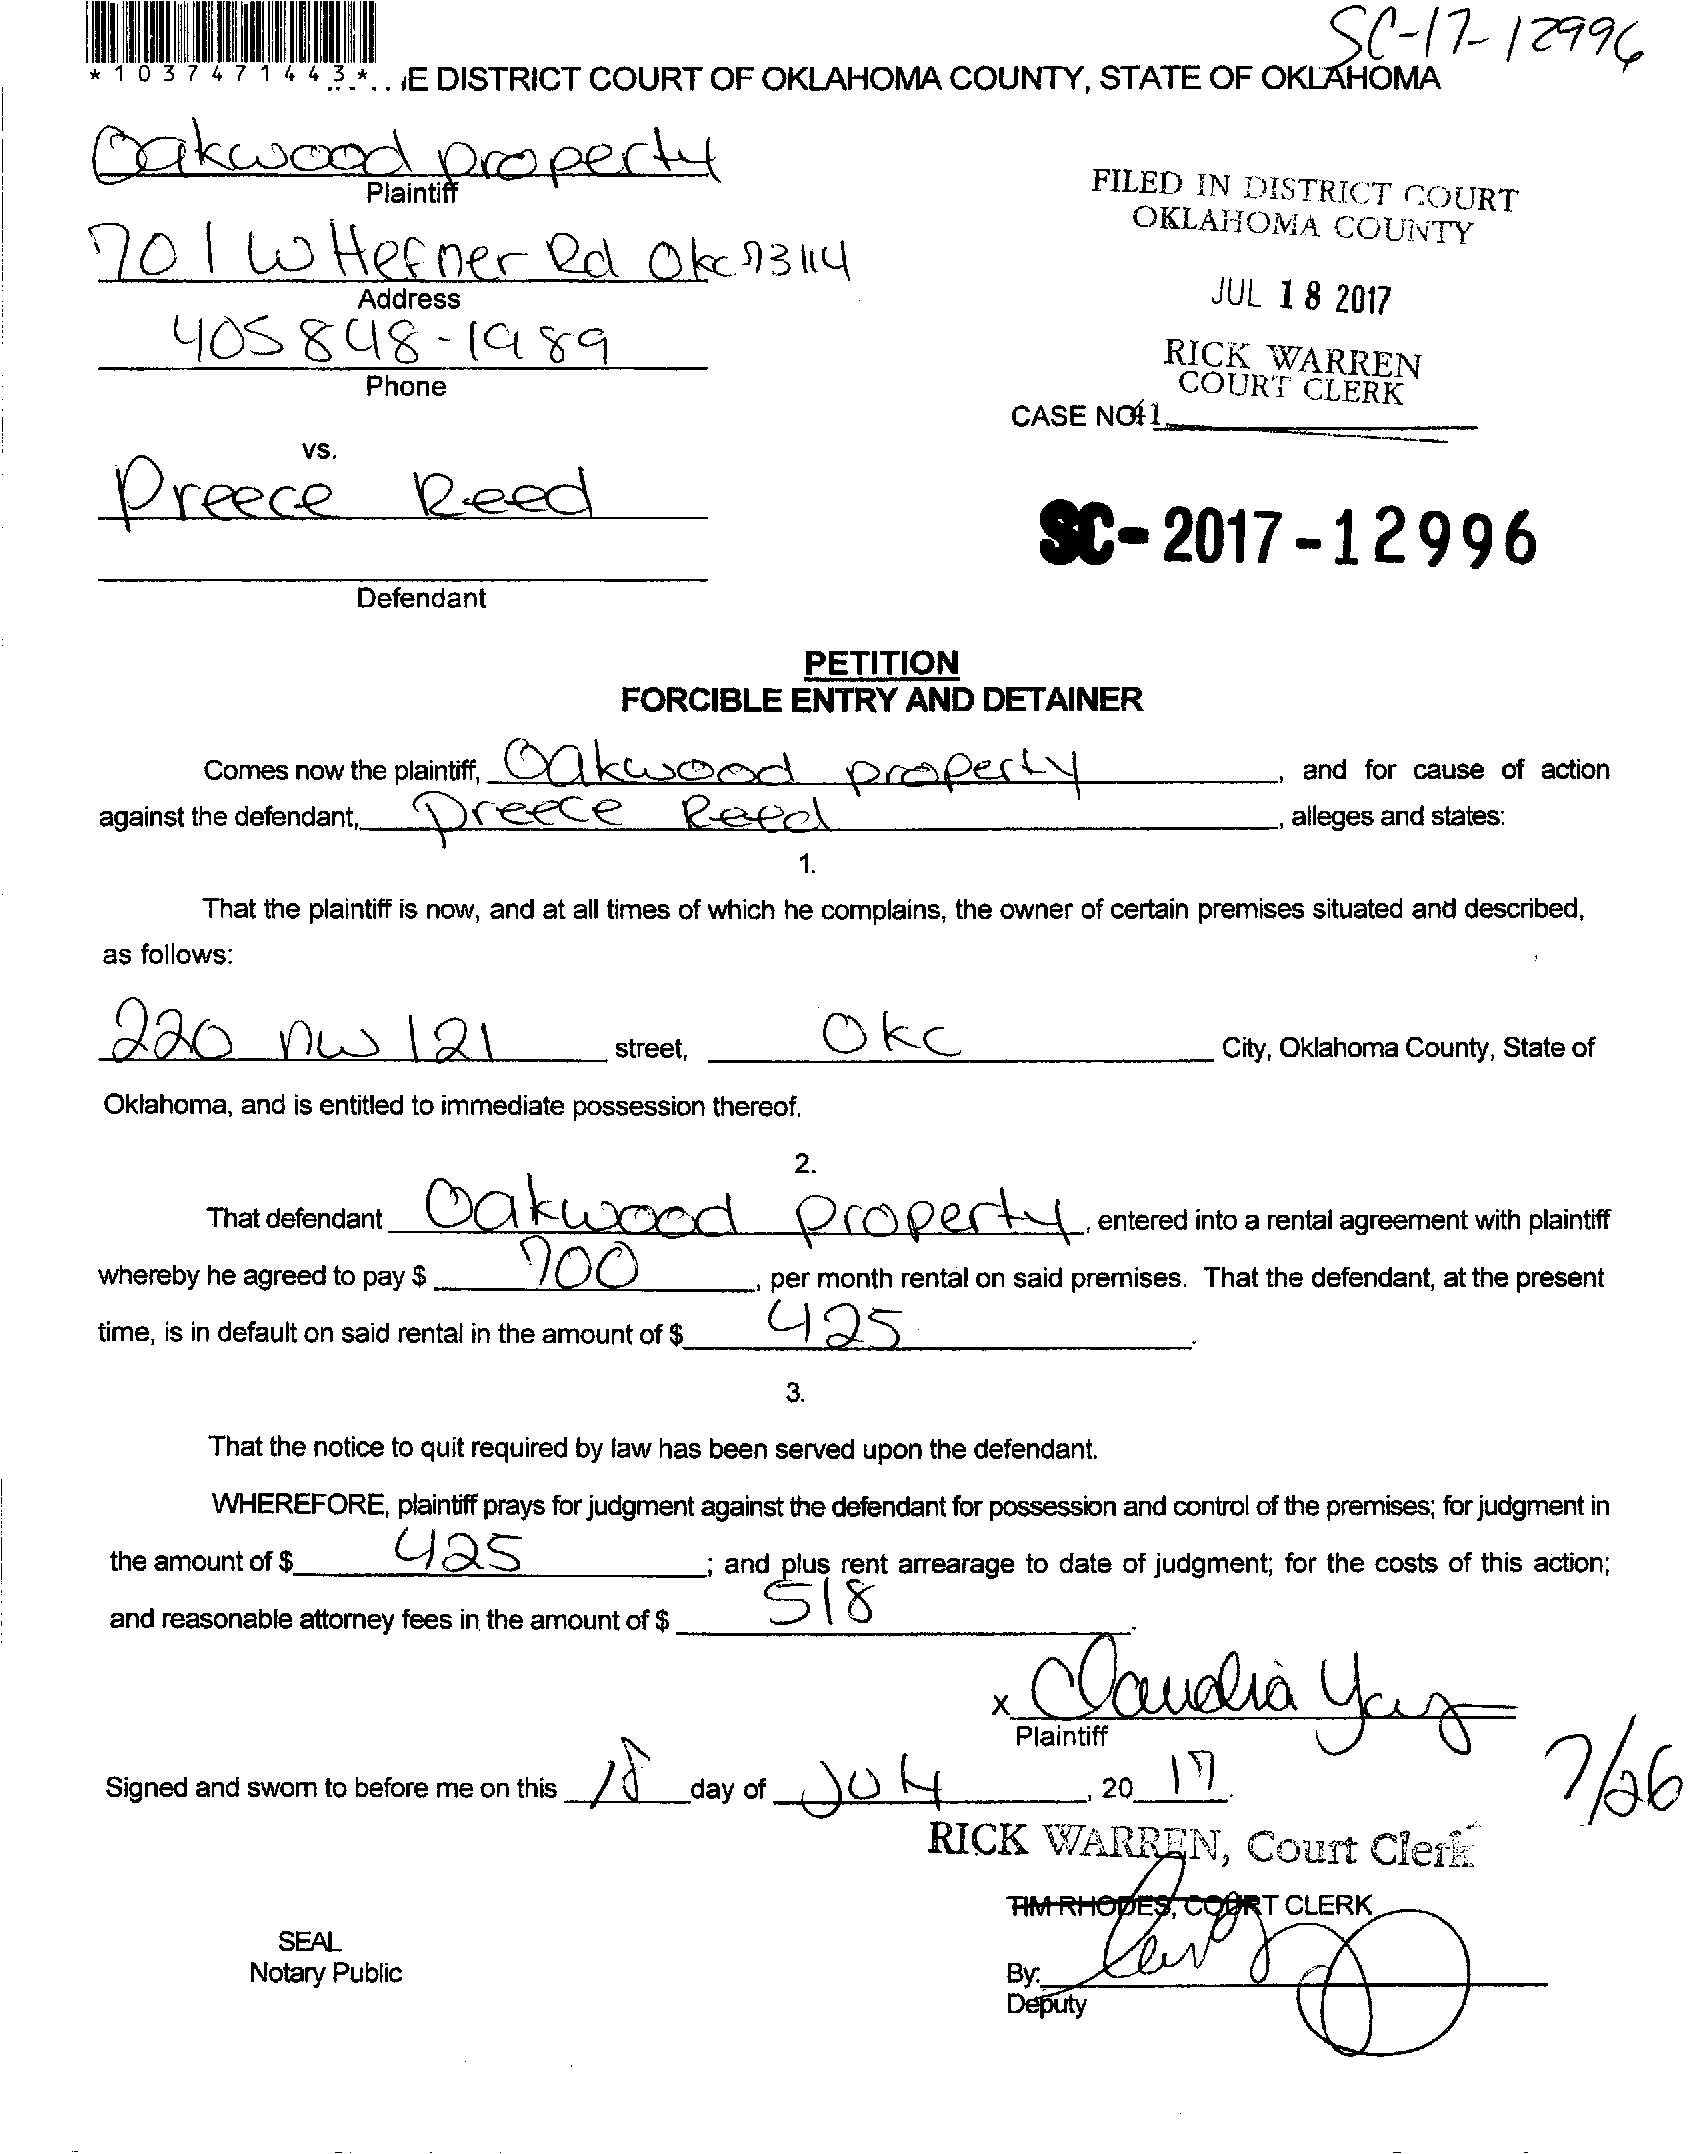 SC-17-12996
*1037471443*
E DISTRICT COURT OF OKLAHOMA COUNTY, STATE OF OKLAHOMA
Oakwood property
Plaintiff
701 W Hefner Rd Okc 73114
Address
405 848-1989
Phone
vs.
Preece Reed
Defendant
FILED IN DISTRICT COURT
OKLAHOMA COUNTY
JUL 18 2017
RICK WARREN
COURT CLERK
CASE NO
SC-2017-12996
PETITION
FORCIBLE ENTRY AND DETAINER
Comes now the plaintiff, Oakwood property, and for cause of action
against the defendant, Preece Reed, alleges and states:
1.
That the plaintiff is now, and at all times of which he complains, the owner of certain premises situated and described,
as follows:
220 nw 121 street, Okc City, Oklahoma County, State of
Oklahoma, and is entitled to immediate possession thereof.
2.
That defendant Oakwood property, entered into a rental agreement with plaintiff
whereby he agreed to pay $ 700, per month rental on said premises. That the defendant, at the present
time, is in default on said rental in the amount of $ 425.
3.
That the notice to quit required by law has been served upon the defendant.
WHEREFORE, plaintiff prays for judgment against the defendant for possession and control of the premises; for judgment in
the amount of $ 425; and plus rent arrearage to date of judgment; for the costs of this action;
and reasonable attorney fees in the amount of $ 518.
x Claudia
Plaintiff
7/26
Signed and sworn to before me on this 18 day of July, 20 17.
RICK WARREN, Court Clerk
TIM RHODES, COURT CLERK
SEAL
Notary Public
By:
Deputy